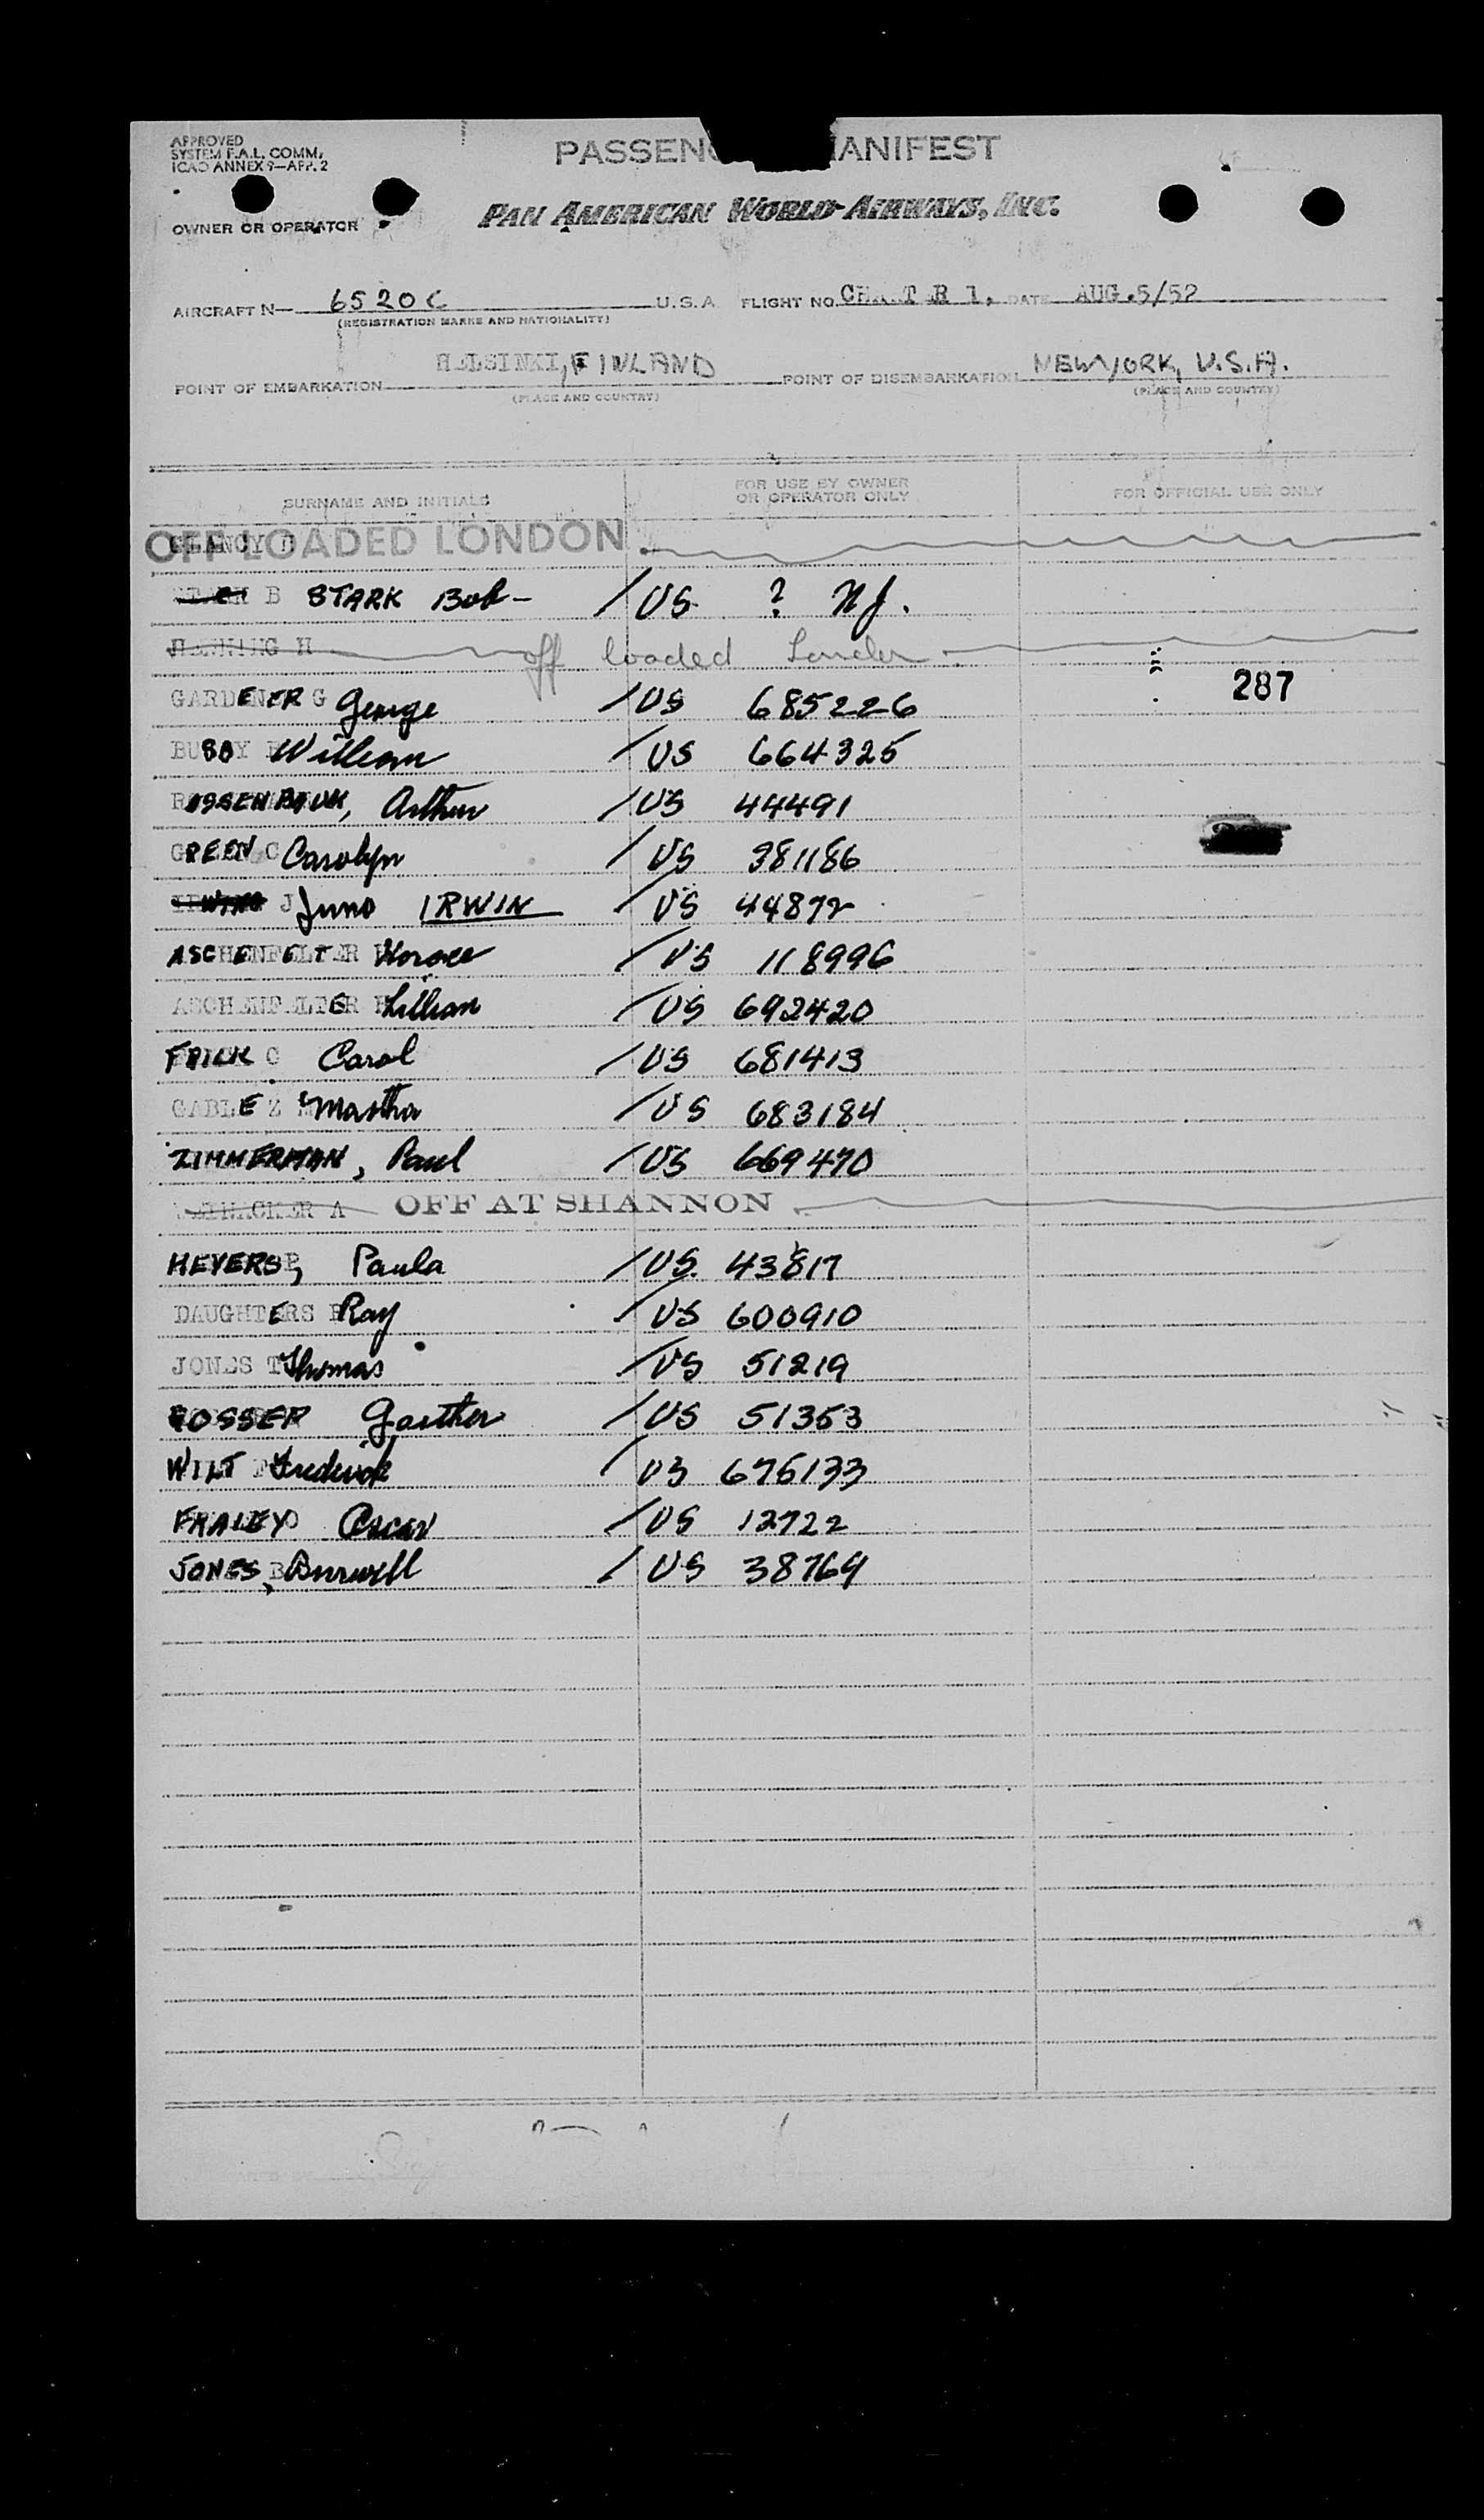 APPROVED
SYSTEM F.A.L. COMM.
ICAO ANNEX 9—APP. 2
PASSEN ANIFEST
PAN AMERICAN WORLD AIRWAYS, INC.
OWNER OR OPERATOR
AIRCRAFT N— 6520C U.S.A. FLIGHT NO. CHA T R 1, DATE AUG.5/52
(REGISTRATION MARKS AND NATIONALITY)
POINT OF EMBARKATION HELSINKI, FINLAND POINT OF DISEMBARKATION NEW YORK, U.S.A.
(PLACE AND COUNTRY) (PLACE AND COUNTRY)
SURNAME AND INITIALS FOR USE BY OWNER OR OPERATOR ONLY FOR OFFICIAL USE ONLY
OFF LOADED LONDON
B STARK Bob - / US ? NJ.
H off loaded London
287
GARDENER G George / US 685226
BUSBY William / US 664325
ROSSENBAUM, Arthur / US 44491
GREEN C Carolyn / US 381186
J Juno IRWIN / US 44872
ASCHENFELTER Horace / US 118996
ASCHENFELTER Lillian / US 692420
FRICK C Carol / US 681413
GABLE Z Martha / US 683184
ZIMMERMAN, Paul / US 669470
A OFF AT SHANNON
MEYERS, Paula / US. 43817
DAUGHTERS Ray / US 600910
JONES T Thomas / US 51219
ROSSER Gaither / US 51353
WILT Frederick / US 675133
FRALEY O Oscar / US 12722
JONES, Burwell / US 38769